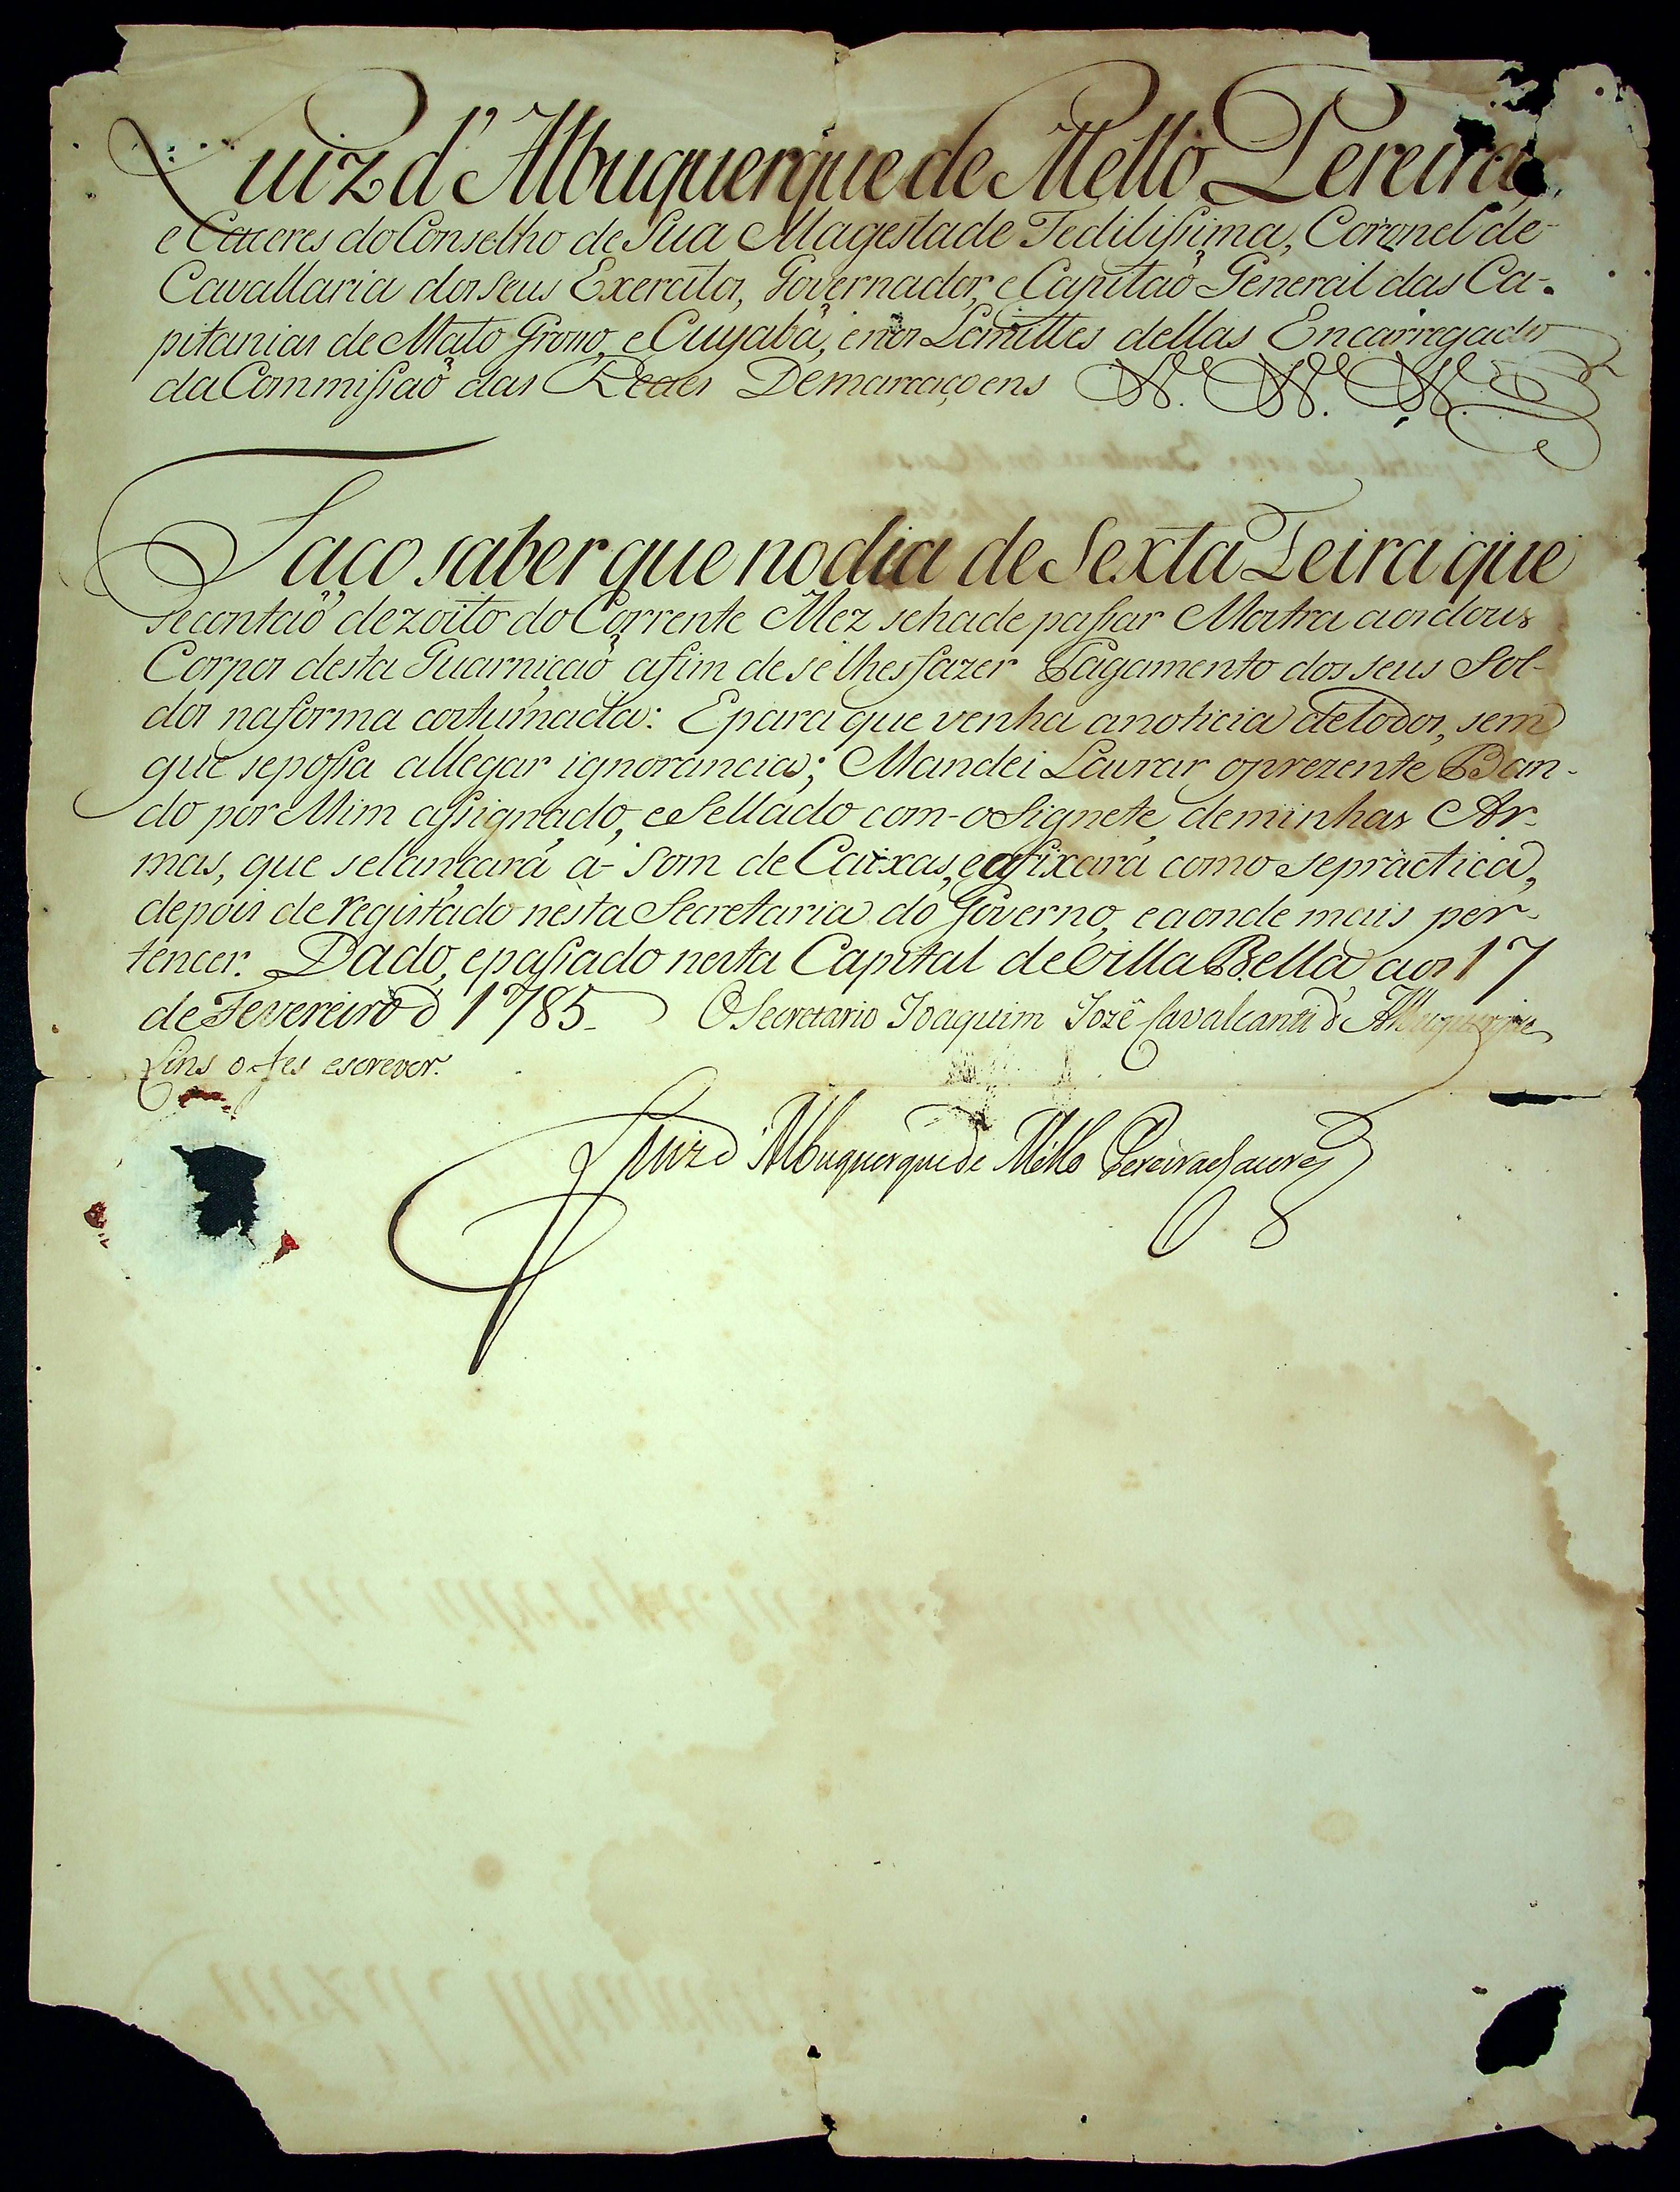 Luiz d'Albuquerque de Mello Pereira,
e Caceres do Conselho de Sua Magestade Fedilissima, Coronel de
Cavallaria dos seus Exercitos, Governador, e Capitaõ General das Ca-
pitanias de Mato Grosso, e Cuyabá, e nos Lemittes dellas Encarregado
da Commissaõ das Reaes Demarcaçoens &.ª &.ª &.ª
Faço saber que no dia de Sexta Feira que
se contaõ dezoito do Corrente Mez se hade passar Mostra aos dous
Corpos desta Guarniçaõ afim de se lhes fazer Pagamento dos seus Sol-
dos na forma costumada: E para que venha a noticia de todos, sem
que se possa allegar ignorancia; Mandei Lavrar o prezente Ban-
do por Mim assignado, e Sellado com o Signete de minhas Ar-
mas, que se lançará á Som de Caixas, e afixará como se practica,
depois de registado nesta Secretaria do Governo, e aonde mais per-
tencer. Dado, e passado nesta Capital de Villa Bella aos 17
de Fevereiro d 1785. O Secretario Joaquim Jozé Cavalcanti d'Albuquerque
Lins o fes escrever.
Luiz d'Albuquerque de Mello Pereira e Caceres